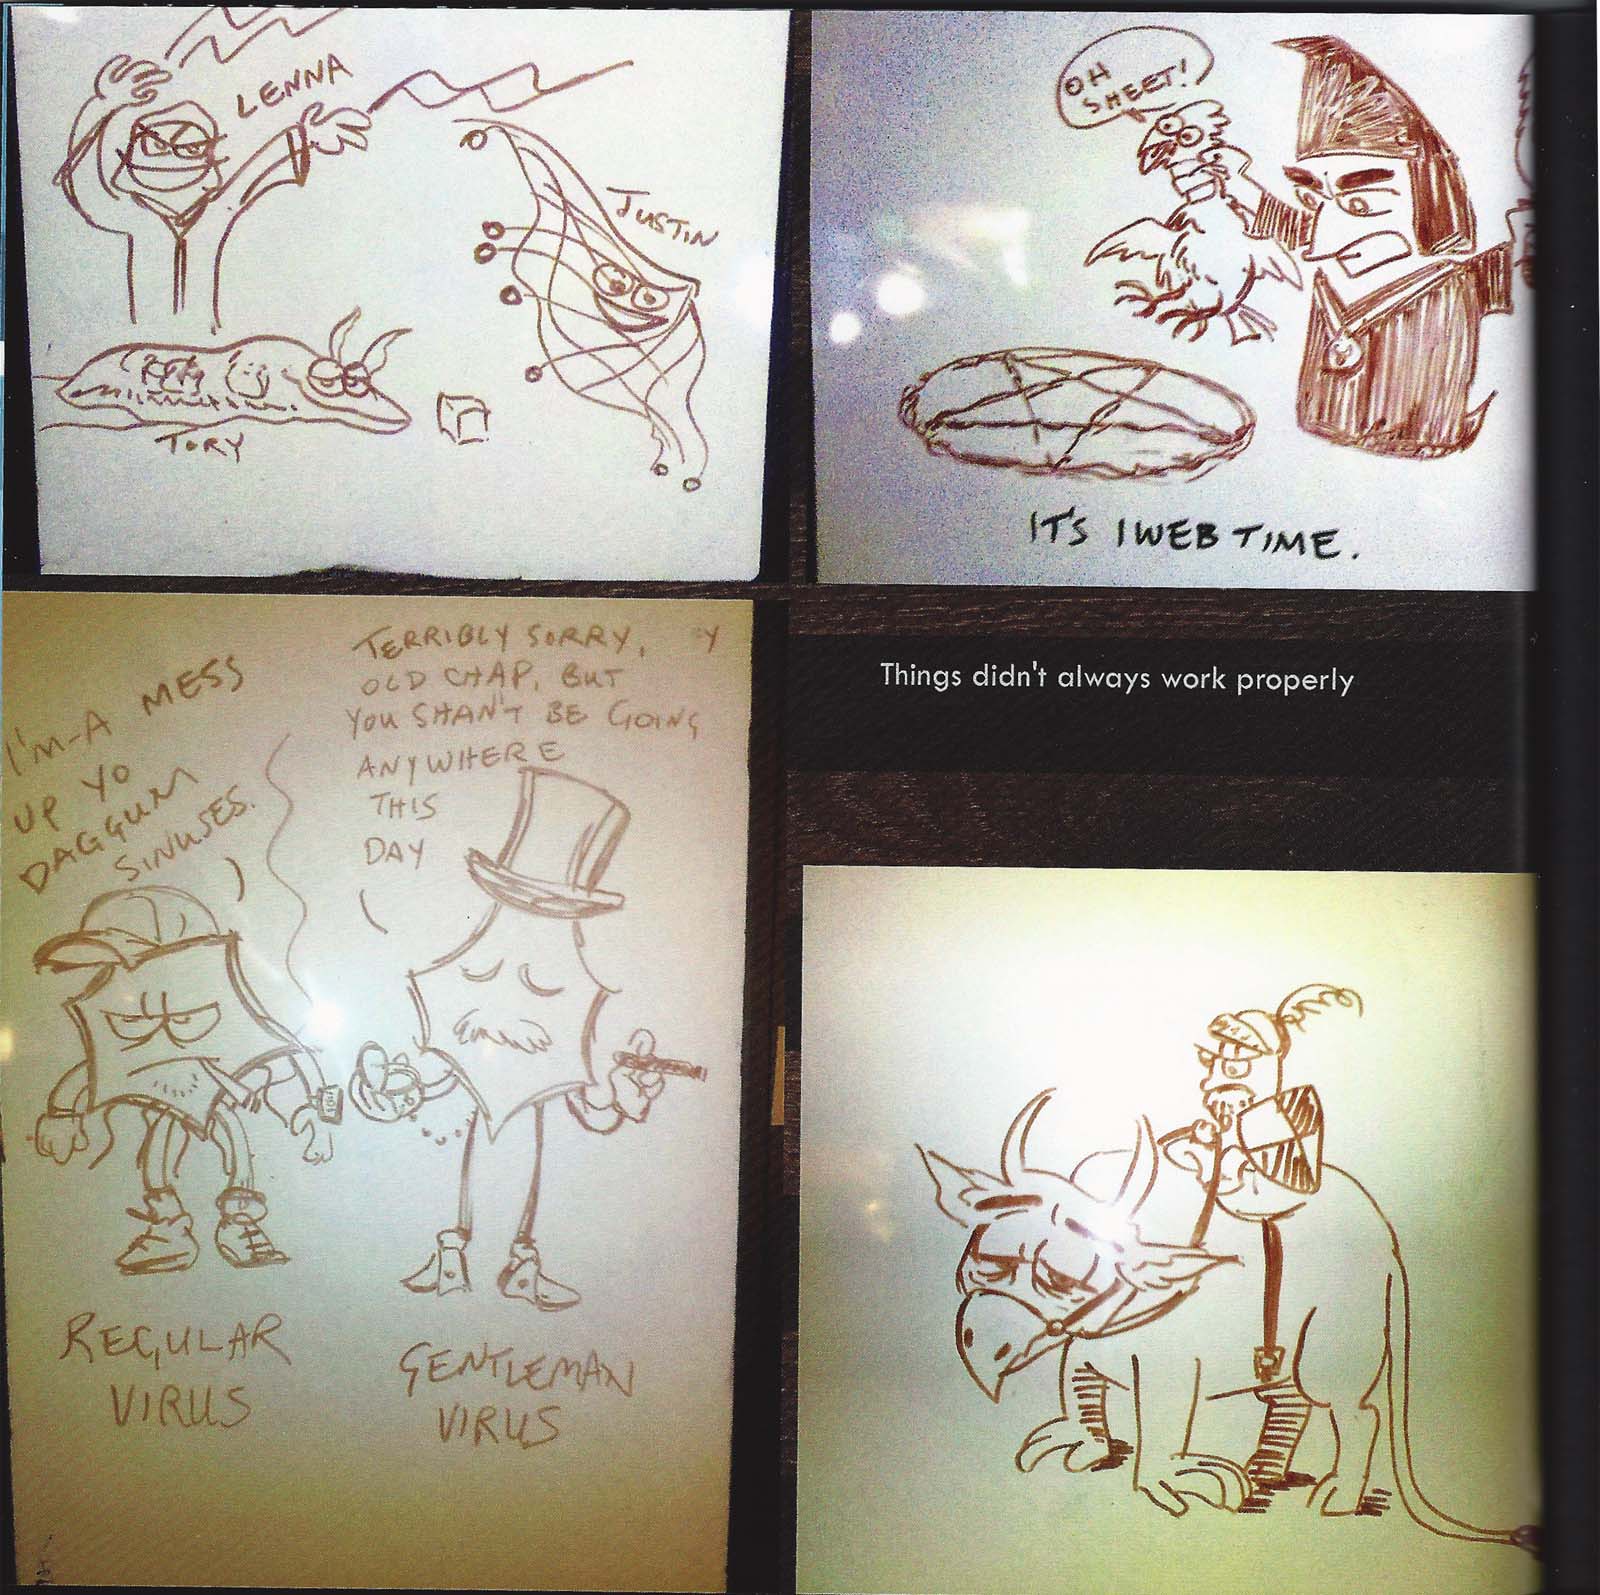 LENNA
JUSTIN
TORY
OH
SHEET!
IT'S IWEB TIME.
I'M-A MESS
UP YO
DAGGUM
SINUSES.
TERRIBLY SORRY,
OLD CHAP, BUT
YOU SHAN'T BE GOING
ANYWHERE
THIS
DAY
REGULAR
VIRUS
GENTLEMAN
VIRUS
Things didn't always work properly